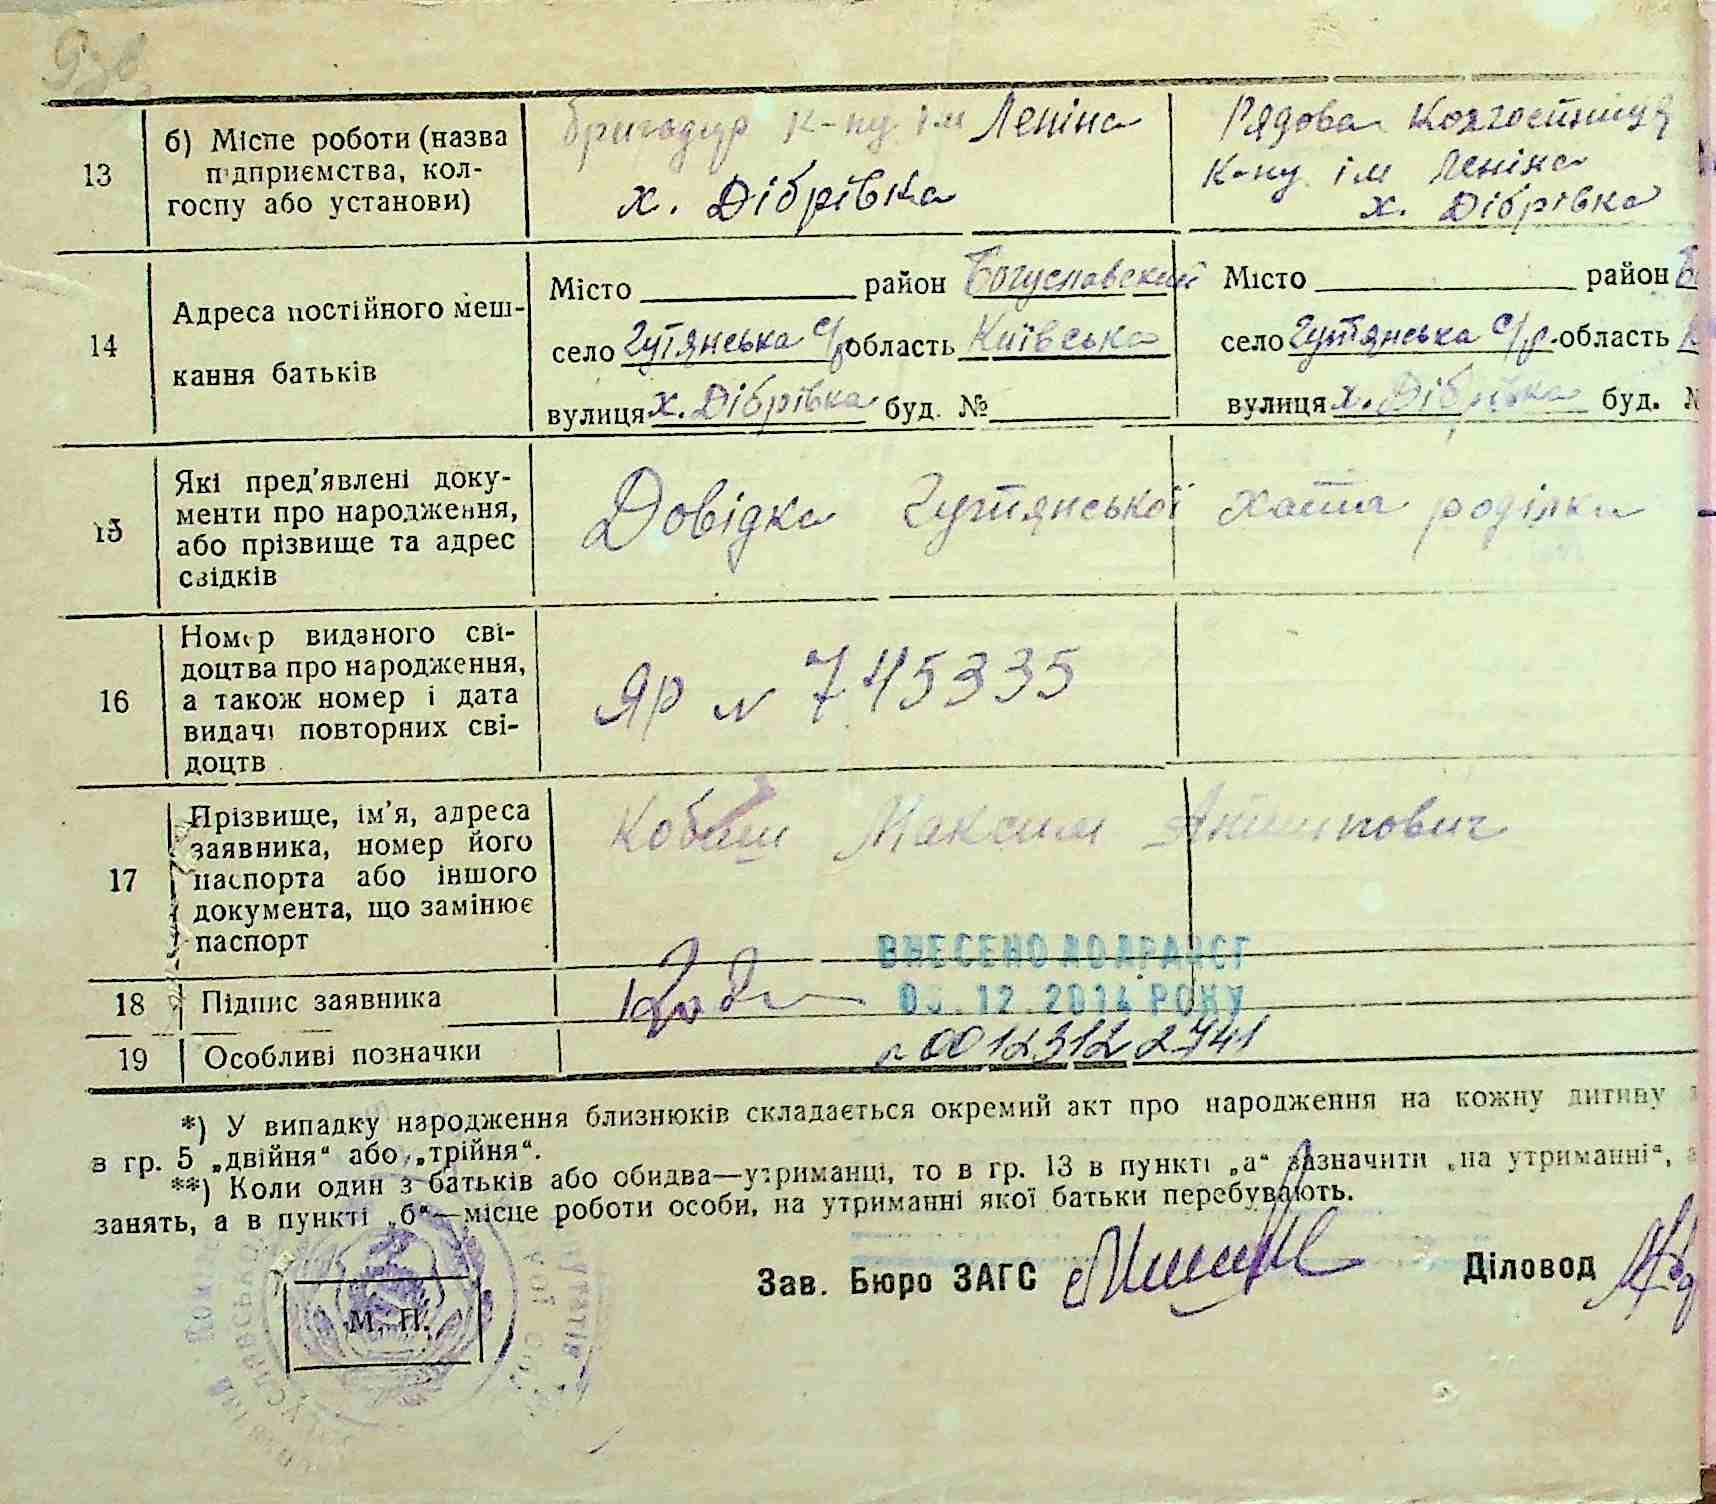 13
б) Місце роботи (назва підприємства, колгоспу або установи)
бригадир к-пу ім Леніна
х. Дібрівка
Рядова Колгоспниця
к-пу ім Леніна
х. Дібрівка
14
Адреса постійного мешкання батьків
Місто район Богуславский
село Гутянська с/р область Київська
вулиця х. Дібрівка буд. №
Місто район
село Гутянська с/р. область
вулиця х. Дібрівка буд.
15
Які пред'явлені документи про народження, або прізвище та адрес свідків
Довідка Гутянської хата роділки
16
Номер виданого свідоцтва про народження, а також номер і дата видачі повторних свідоцтв
ЯР N 745335
17
Прізвище, ім'я, адреса заявника, номер його паспорта або іншого документа, що замінює паспорт
Кобаш Максим
18
Підпис заявника
ВНЕСЕНО ДО ДРАЦСГ
12.2014 РОКУ
19
Особливі позначки
00123122741
*) У випадку народження близнюків складається окремий акт про народження на кожну дитину
в гр. 5 „двійня“ або „трійня“.
**) Коли один з батьків або обидва—утриманці, то в гр. 13 в пункті „а“ зазначити „на утриманні“,
занять, а в пункті „б“—місце роботи особи, на утриманні якої батьки перебувають.
Зав. Бюро ЗАГС
Діловод
М. П.